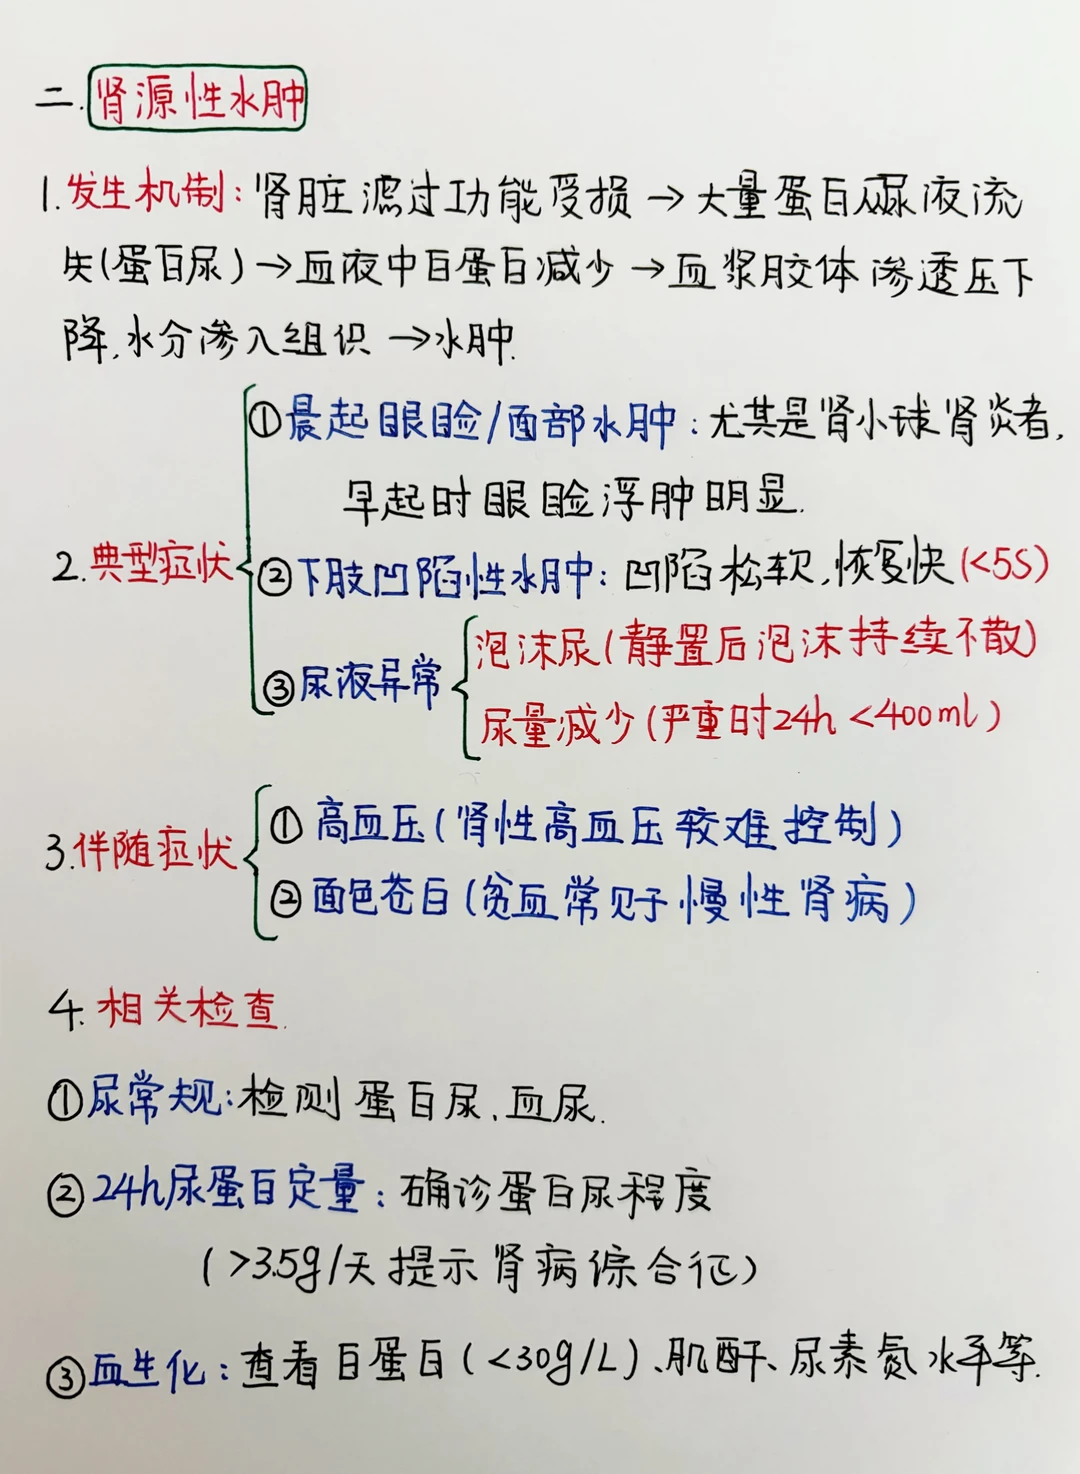 二.肾源性水肿
1.发生机制:肾脏滤过功能受损→大量蛋白从尿液流
失(蛋白尿)→血液中白蛋白减少→血浆胶体渗透压下
降,水分渗入组织→水肿.
①晨起眼睑/面部水肿:尤其是肾小球肾炎者,
早起时眼睑浮肿明显.
2.典型症状
②下肢凹陷性水肿:凹陷松软,恢复快(<5S)
③尿液异常
泡沫尿(静置后泡沫持续不散)
尿量减少(严重时24h<400ml)
3.伴随症状
①高血压(肾性高血压较难控制)
②面色苍白(贫血常见于慢性肾病)
4.相关检查.
①尿常规:检测蛋白尿、血尿.
②24h尿蛋白定量:确诊蛋白尿程度
(>3.5g/天提示肾病综合征)
③血生化:查看白蛋白(<30g/L)、肌酐、尿素氮水平等.